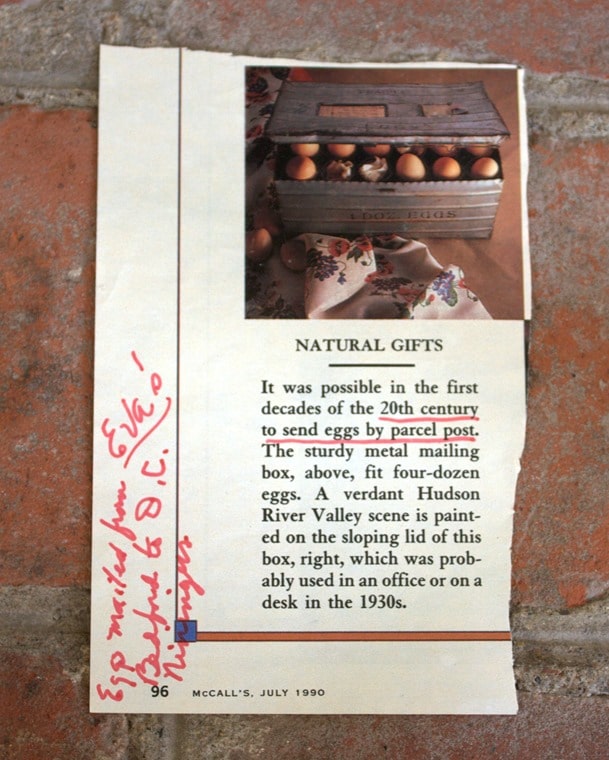 DOZ EGGS
NATURAL GIFTS
It was possible in the first
decades of the 20th century
to send eggs by parcel post.
The sturdy metal mailing
box, above, fit four-dozen
eggs. A verdant Hudson
River Valley scene is paint-
ed on the sloping lid of this
box, right, which was prob-
ably used in an office or on a
desk in the 1930s.
mailed from Eva's
to D.C.
96 McCALL'S, JULY 1990